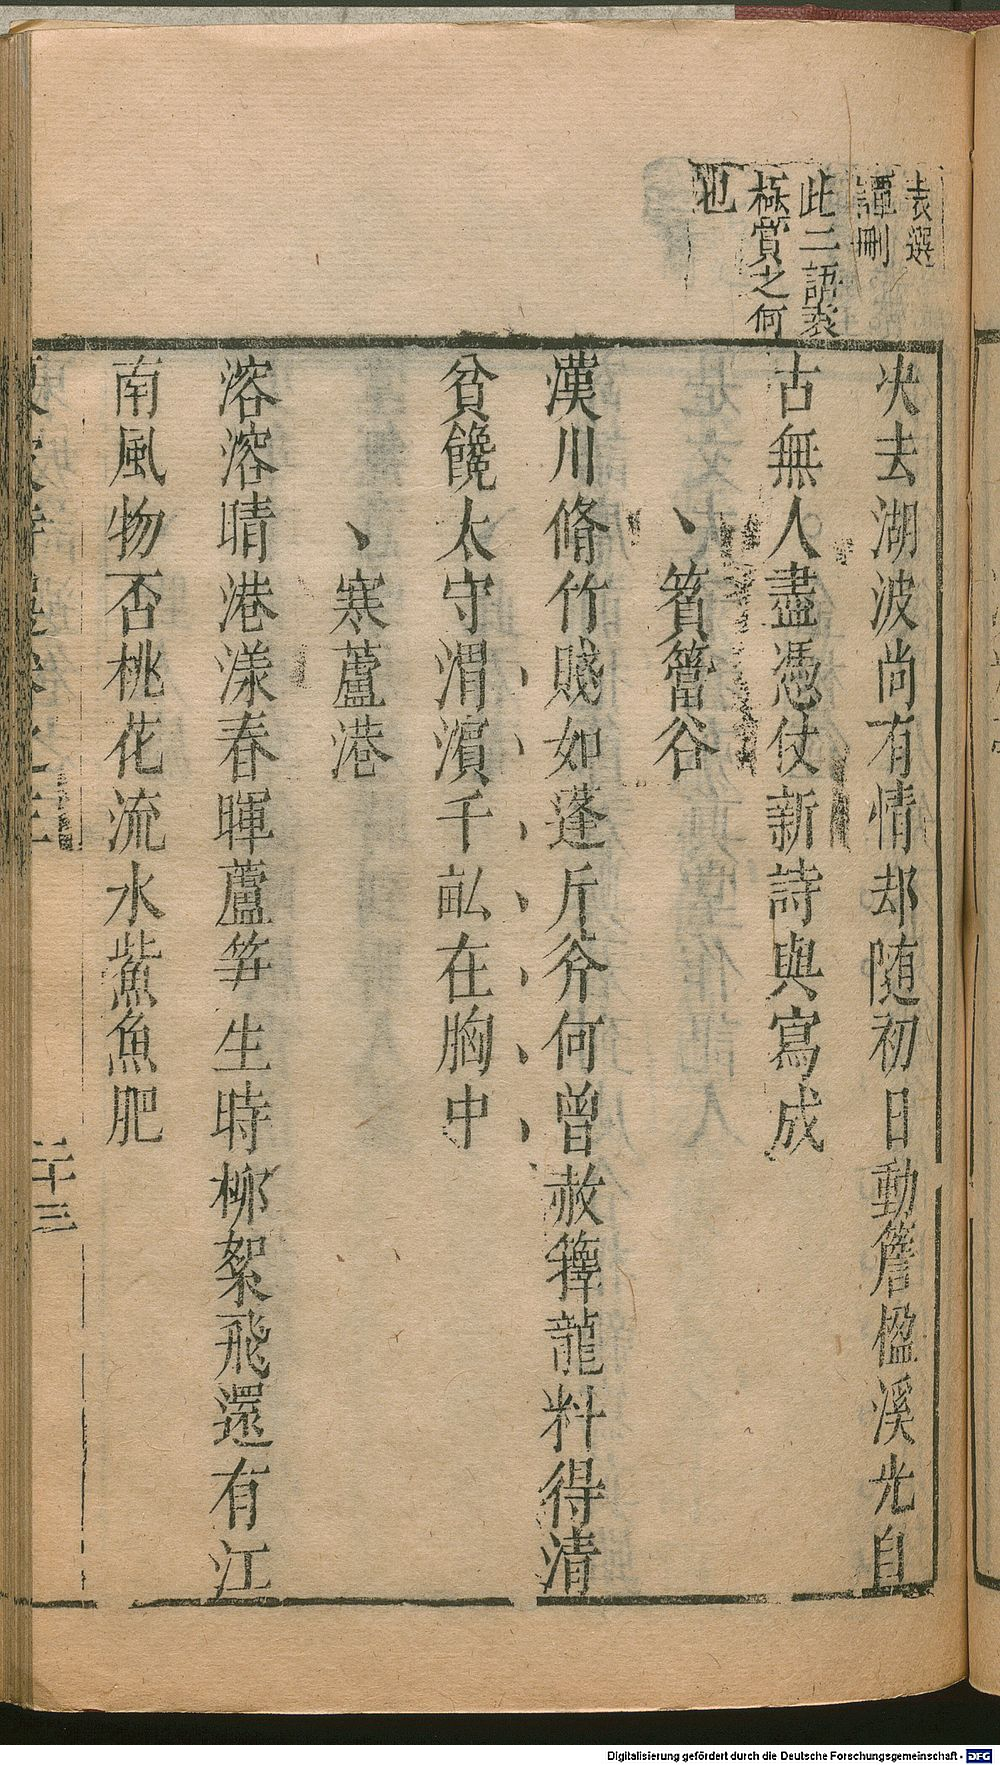 袁選
譚刪
此二語袁
極賞之何
也
决去湖波尚有情却随初日動簷楹溪光自
古無人畫憑仗新詩與寫成
篔簹谷
漢川脩竹賤如蓬斤斧何曾赦籜龍料得清
貧饞太守渭濵千畆在胸中
寒蘆港
溶溶晴港漾春暉蘆笋生時柳絮飛還有江
南風物否桃花流水鮆魚肥
二十三
Digitalisierung gefördert durch die Deutsche Forschungsgemeinschaft - DFG